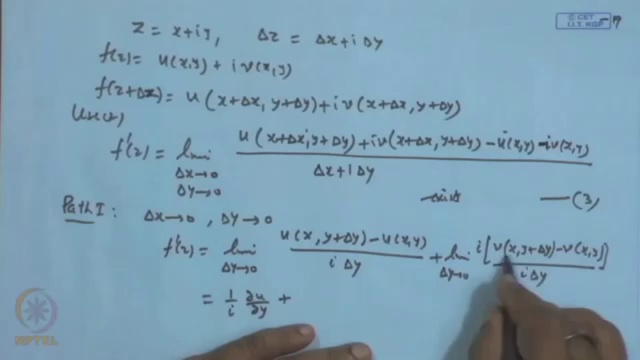 © CET
I.I.T. KGP
-7
Z = x+iy, Δz = Δx+iΔy
f(z) = u(x,y) + i v(x,y)
f(z+Δz) = u(x+Δx, y+Δy) + i v(x+Δx, y+Δy)
f'(z) = lim Δx→0 Δy→0 u(x+Δx, y+Δy) + i v(x+Δx, y+Δy) - u(x,y) - i v(x,y) / Δx + i Δy
exists — (3)
Path I : Δx→0, Δy→0
f'(z) = lim Δy→0 u(x, y+Δy) - u(x,y) / i Δy + lim Δy→0 i [v(x, y+Δy) - v(x,y)] / i Δy
= 1/i ∂u/∂y +
NPTEL